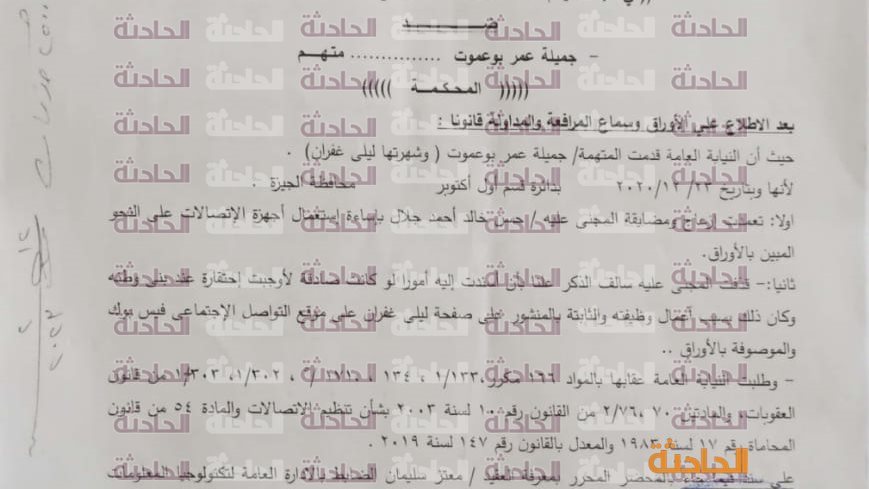 ضـــــــــد
- جميلة عمر بوعموت ............... متهم
((((( المحكمة )))))
بعد الاطلاع على الأوراق وسماع المرافعة والمداولة قانونا :
حيث أن النيابة العامة قدمت المتهمة/ جميلة عمر بوعموت ( وشهرتها ليلى غفران) .
لأنها وبتاريخ ٢٣/ ١٢/ ٢٠٢٠ بدائرة قسم أول أكتوبر محافظة الجيزة .
اولا: تعمدت ازعاج ومضايقة المجنى عليه / حسن خالد أحمد جلال بإساءة إستعمال أجهزة الإتصالات على النحو
المبين بالأوراق.
ثانيا:- قذفت المجنى عليه سالف الذكر علنا بأن أسندت إليه أمورا لو كانت صادقة لأوجبت إحتقارة عند بنى وطنه
وكان ذلك بسبب أعمال وظيفته والثابتة بالمنشور على صفحة ليلى غفران على موقع التواصل الإجتماعى فيس بوك
والموصوفة بالأوراق ..
- وطلبت النيابة العامة عقابها بالمواد ١٦٦ مكرر، ١/١٣٣ ، ١٣٤ ، ١/٣٠٢، ١/٣٠٣ من قانون
العقوبات، والمادتين ٧٠ ،٢/٧٦ من القانون رقم ١٠ لسنة ٢٠٠٣ بشأن تنظيم الاتصالات والمادة ٥٤ من قانون
المحاماة رقم ١٧ لسنة ١٩٨٣ والمعدل بالقانون رقم ١٤٧ لسنة ٢٠١٩ .
على سند فيما جاء بالمحضر المحرر بمعرفة العقيد / معتز سليمان الضابط بالإدارة العامة لتكنولوجيا المعلومات
الحادثة